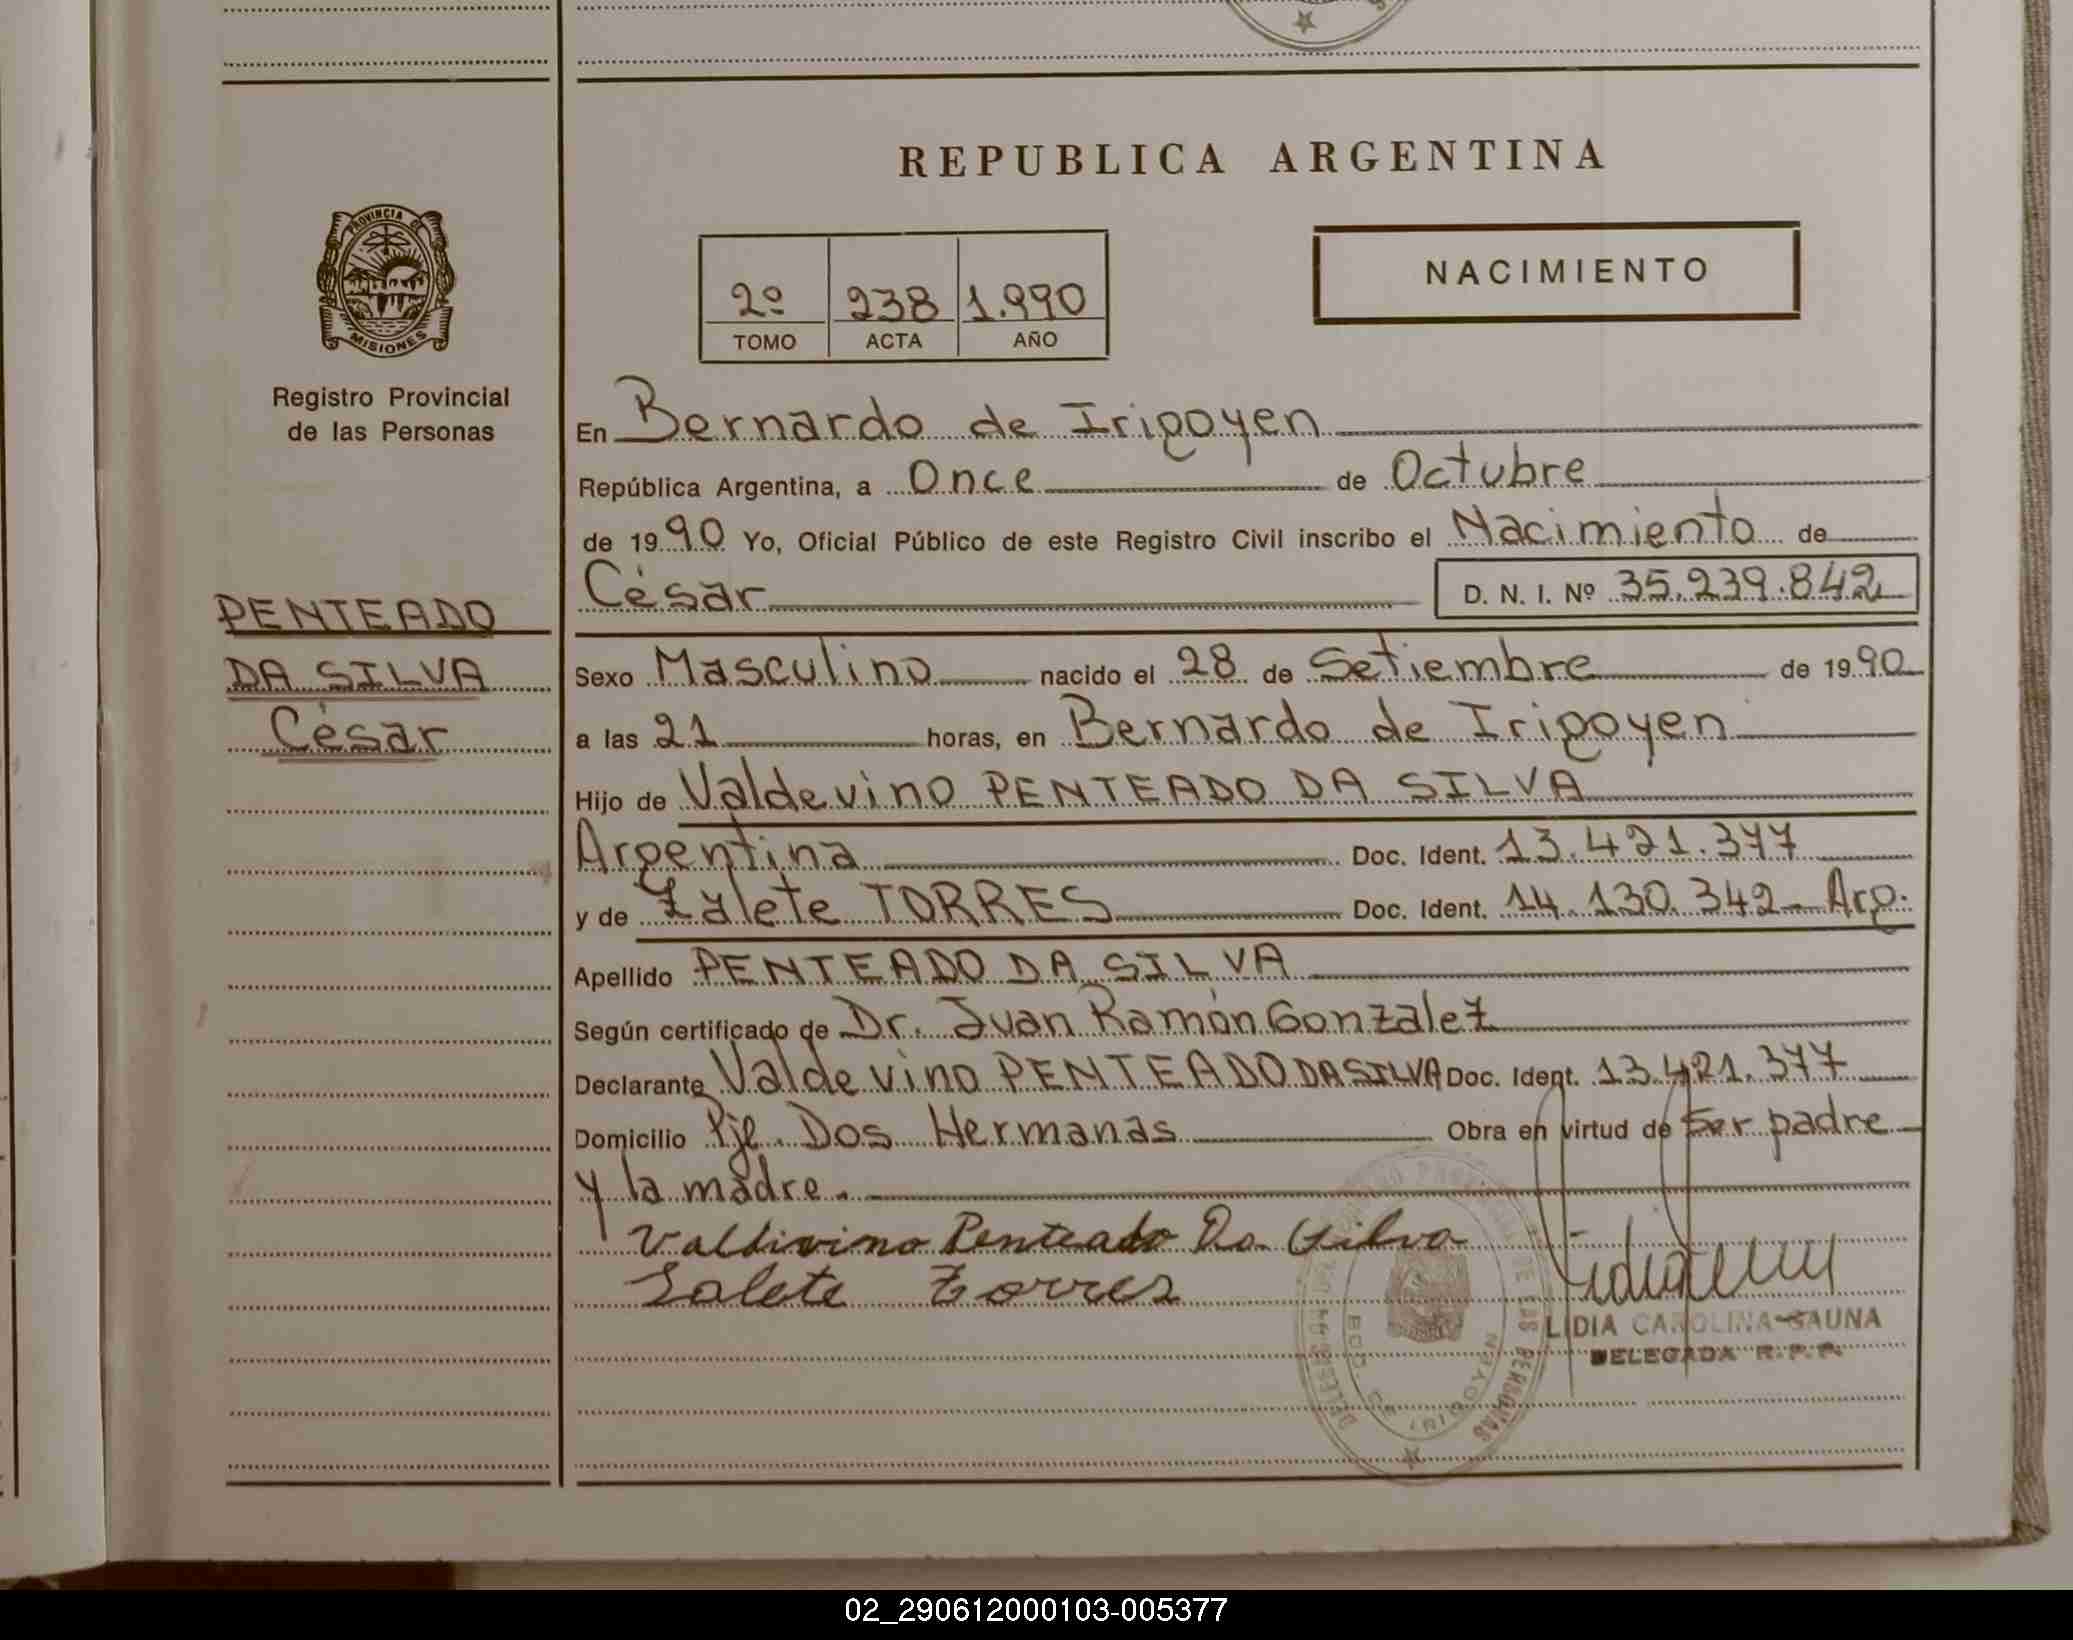 REPUBLICA ARGENTINA
PROVINCIA DE
MISIONES
Registro Provincial
de las Personas
2º 238 1.990
TOMO ACTA AÑO
NACIMIENTO
En Bernardo de Irigoyen
República Argentina, a Once de Octubre
de 1990 Yo, Oficial Público de este Registro Civil inscribo el Nacimiento de
César D. N. I. Nº 35.239.842
PENTEADO
DA SILVA
César
Sexo Masculino nacido el 28 de Setiembre de 1990
a las 21 horas, en Bernardo de Irigoyen
Hijo de Valdevino PENTEADO DA SILVA
Argentina Doc. Ident. 13.421.377
y de Zalete TORRES Doc. Ident. 14.130.342 - Arg.
Apellido PENTEADO DA SILVA
Según certificado de Dr. Juan Ramón Gonzalez
Declarante Valdevino PENTEADO DA SILVA Doc. Ident. 13.421.377
Domicilio Pje. Dos Hermanas Obra en virtud de ser padre
y la madre.
Valdivino Penteado Da Silva
Salete Torres
LIDIA CAROLINA SAUNA
DELEGADA R.P.P.
BDO. DE IRIGOYEN
02_290612000103-005377